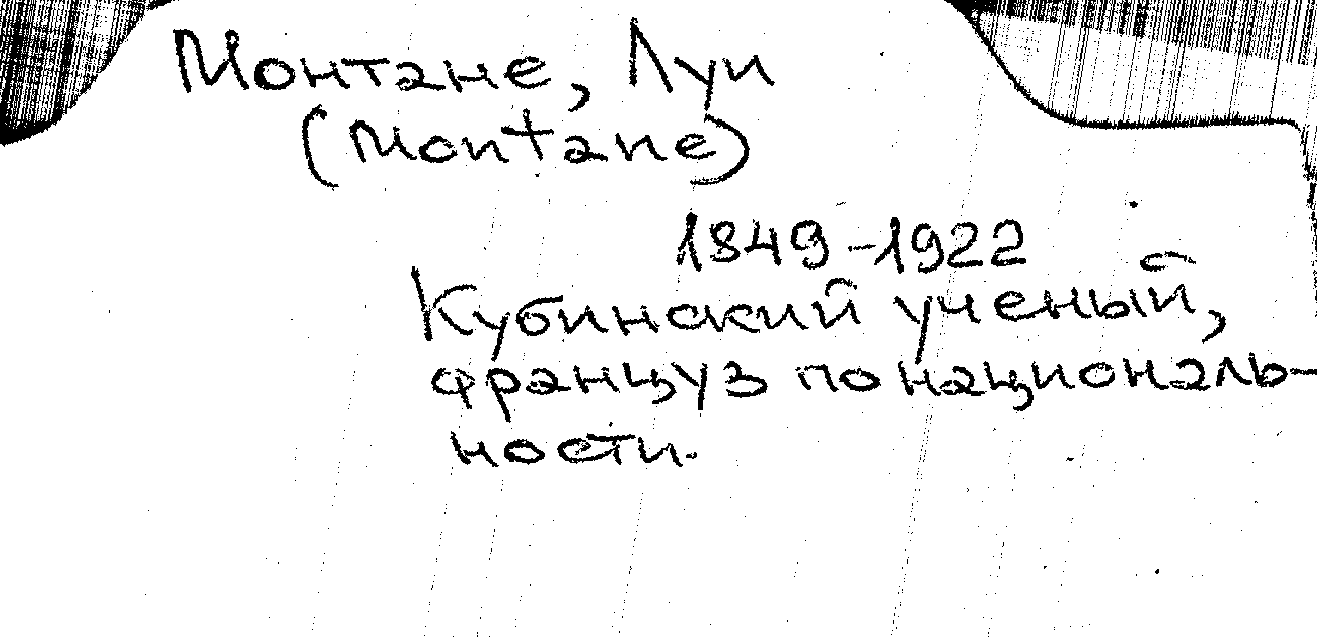 Монтане, Луи
(Montane)
1849-1922
Кубинский ученый,
француз по националь-
ности.